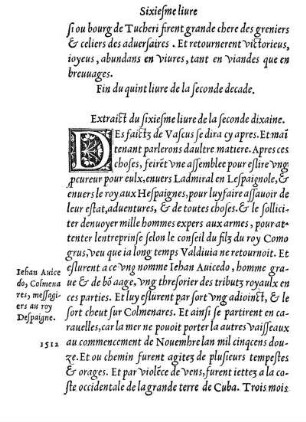 Sixiesme liure
si ou bourg de Tucheri firent grande chere des greniers
& celiers des aduersaires . Et retournerent victorieus,
ioyeus, abundans en viures, tant en viandes que en
breuuages.
Fin du quint liure de la seconde decade.
Extraict du sixiesme liure de la seconde dixaine.
DEs faictz de Vascus se dira cy apres. Et mai
tenant parlerons daultre matiere. Apres ces
choses, feirẽt vne assemblee pour eslire vng
pcureur pour eulx, enuers Ladmiral en Lespaignole, &
enuers le roy aux Hespaignes, pour luy faire assauoir de
leur estat, aduentures, & de toutes choses. & le sollici-
ter denuoyer mille hommes expers aux armes, pour at-
tenter lentreprinse selon le conseil du filz du roy Como
grus, veu que ia long temps Valdiuia ne retournoit. Et
eslurent a ce vng nomme Iehan Auicedo, homme gra-
ue & de bõ aage, vng thresorier des tributz royaulx en
ces parties. Et luy eslurent par sort vng adioinct, & le
sort cheut sur Colmenares. Et ainsi se partirent en ca-
rauelles, car la mer ne pouoit porter la autres vaisseaux
au commencement de Nouembre lan mil cincqens dou-
ze. Et ou chemin furent agitez de plusieurs tempestes
& orages. Et par violẽce de vens, furent iettes a la co-
ste occidentale de la grande terre de Cuba. Trois mois
Iehan Auice
do, Colmena
res, messagi-
ers au roy
Despaigne.
1512